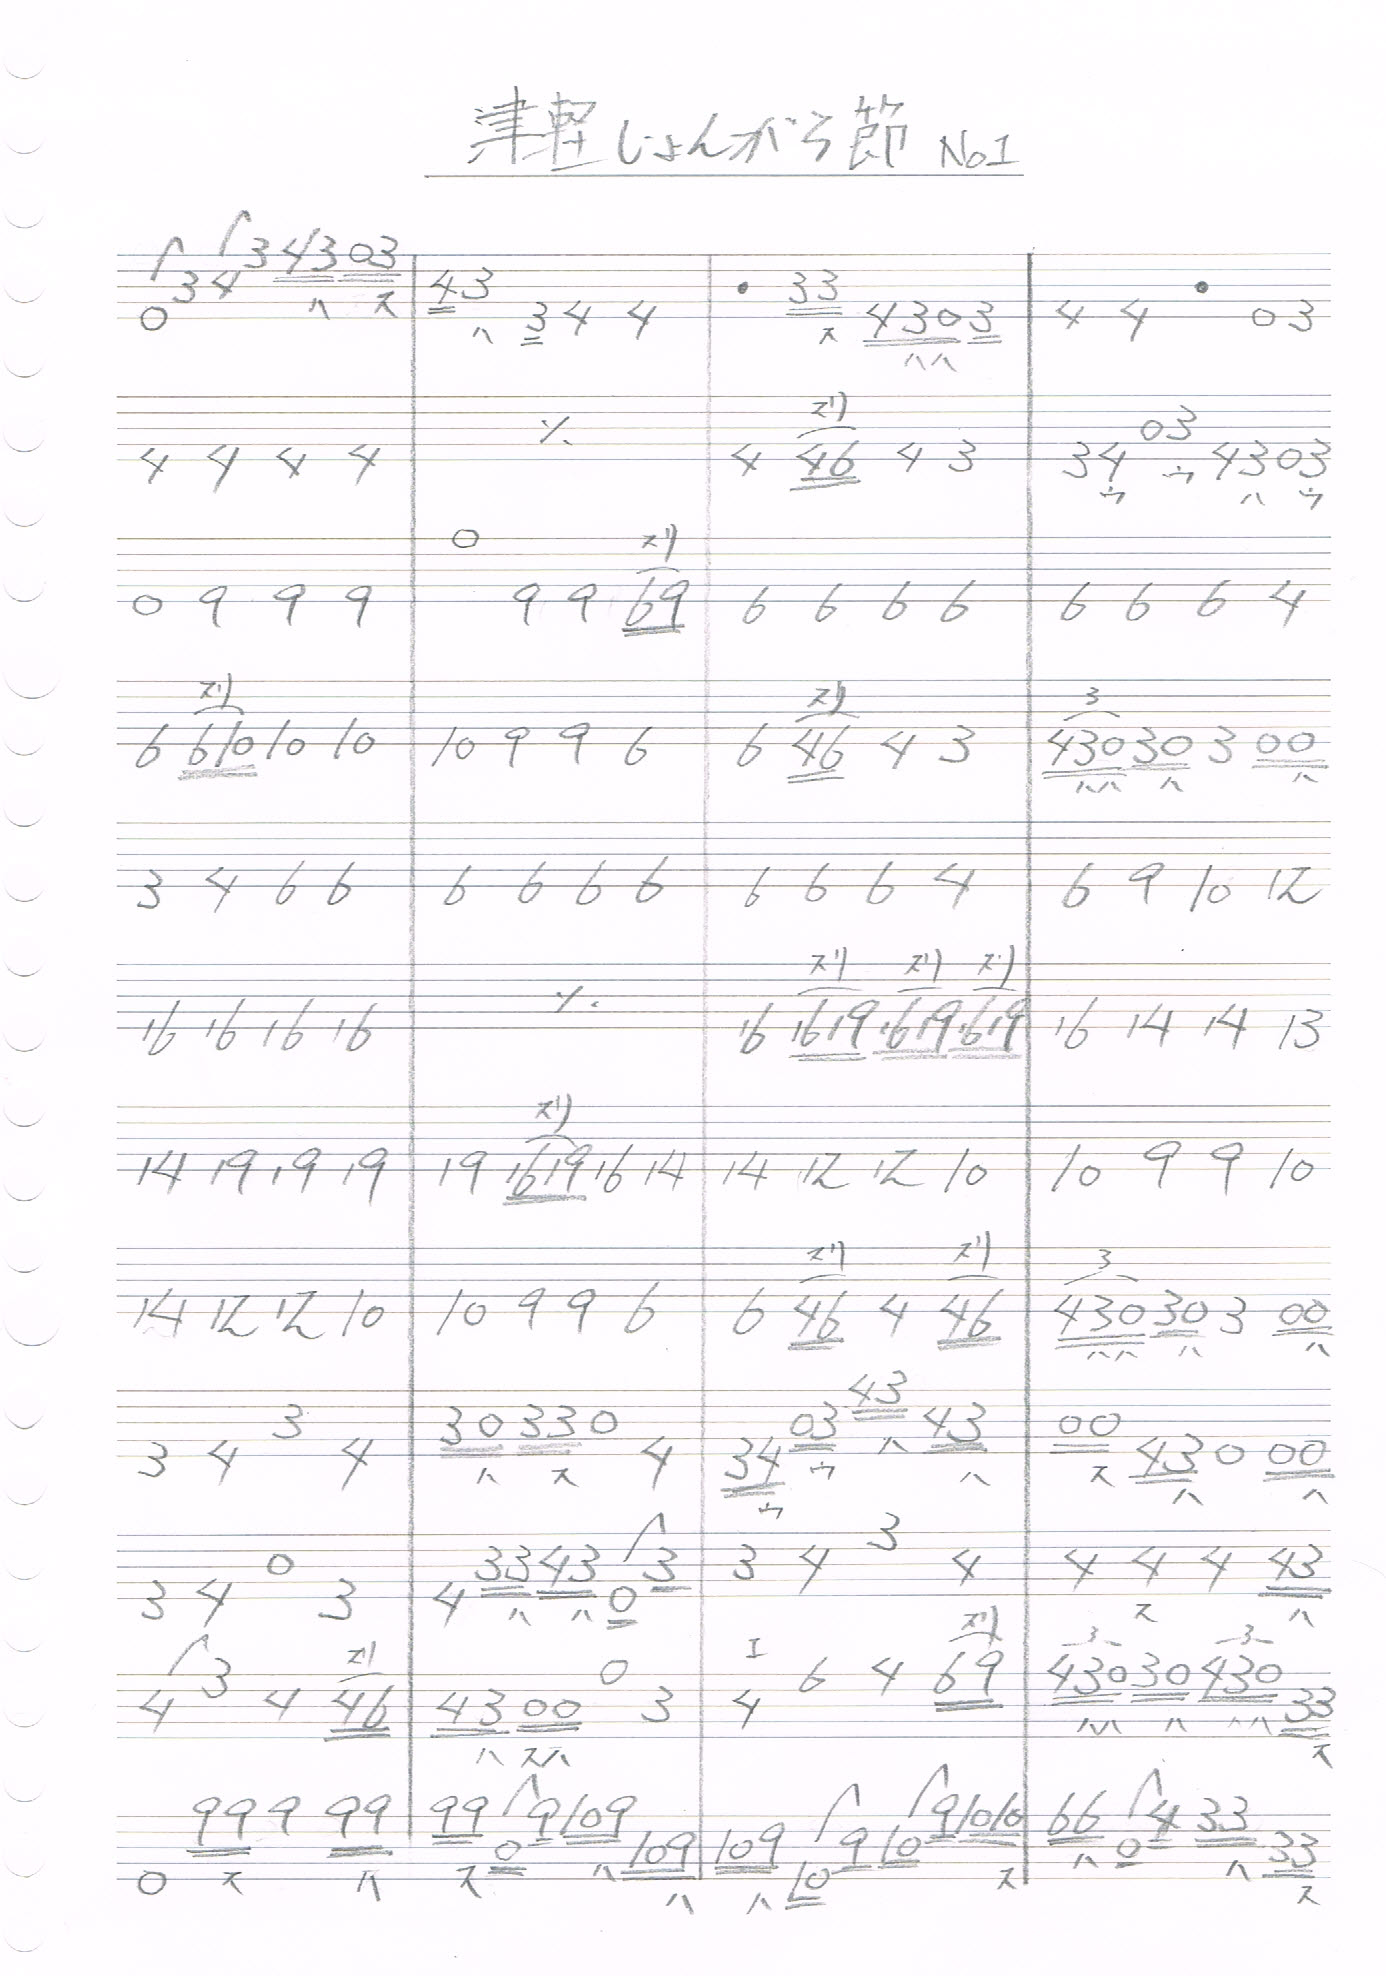 津軽じょんがら節 No1
0 3 4 3 43 03 43 3 4 4 • 33 430 3 4 4 • 0 3
ハ ス ハ ス ハハ
4 4 4 4 ٪ 4 ズリ 46 4 3 34 03 43 03
ウ ウ ハ ウ
0 9 9 9 0 9 9 ズリ 69 6 6 6 6 6 6 6 4
6 ズリ 610 10 10 10 9 9 6 6 ズリ 46 4 3 3 430 30 3 00
ハハ ハ ハ
3 4 6 6 6 6 6 6 6 6 6 4 6 9 10 12
16 16 16 16 ٪ 16 ズリ 1619 ズリ 1619 ズリ 1619 16 14 14 13
14 19 19 19 19 ズリ 1619 16 14 14 12 12 10 10 9 9 10
14 12 12 10 10 9 9 6 6 ズリ 46 4 ズリ 46 3 430 30 3 00
ハハ ハ ハ
3 4 3 4 30 33 0 4 34 03 43 43 00 43 0 00
ハ ス ウ ウ ハ ハ ス ハ ハ
3 4 0 3 4 33 43 0 3 3 4 3 4 4 4 4 43
ハ ハ ス ハ
4 3 4 ズリ 46 43 00 0 3 I 4 6 4 ズリ 69 3 430 30 3 430 33
ハ スハ ハハ ハ ハハ ス
0 99 9 99 99 0 9 109 109 109 10 9 10 9 1010 66 0 4 33 33
ス ハ ス ハ ハ ハ ス ハ ハ ス